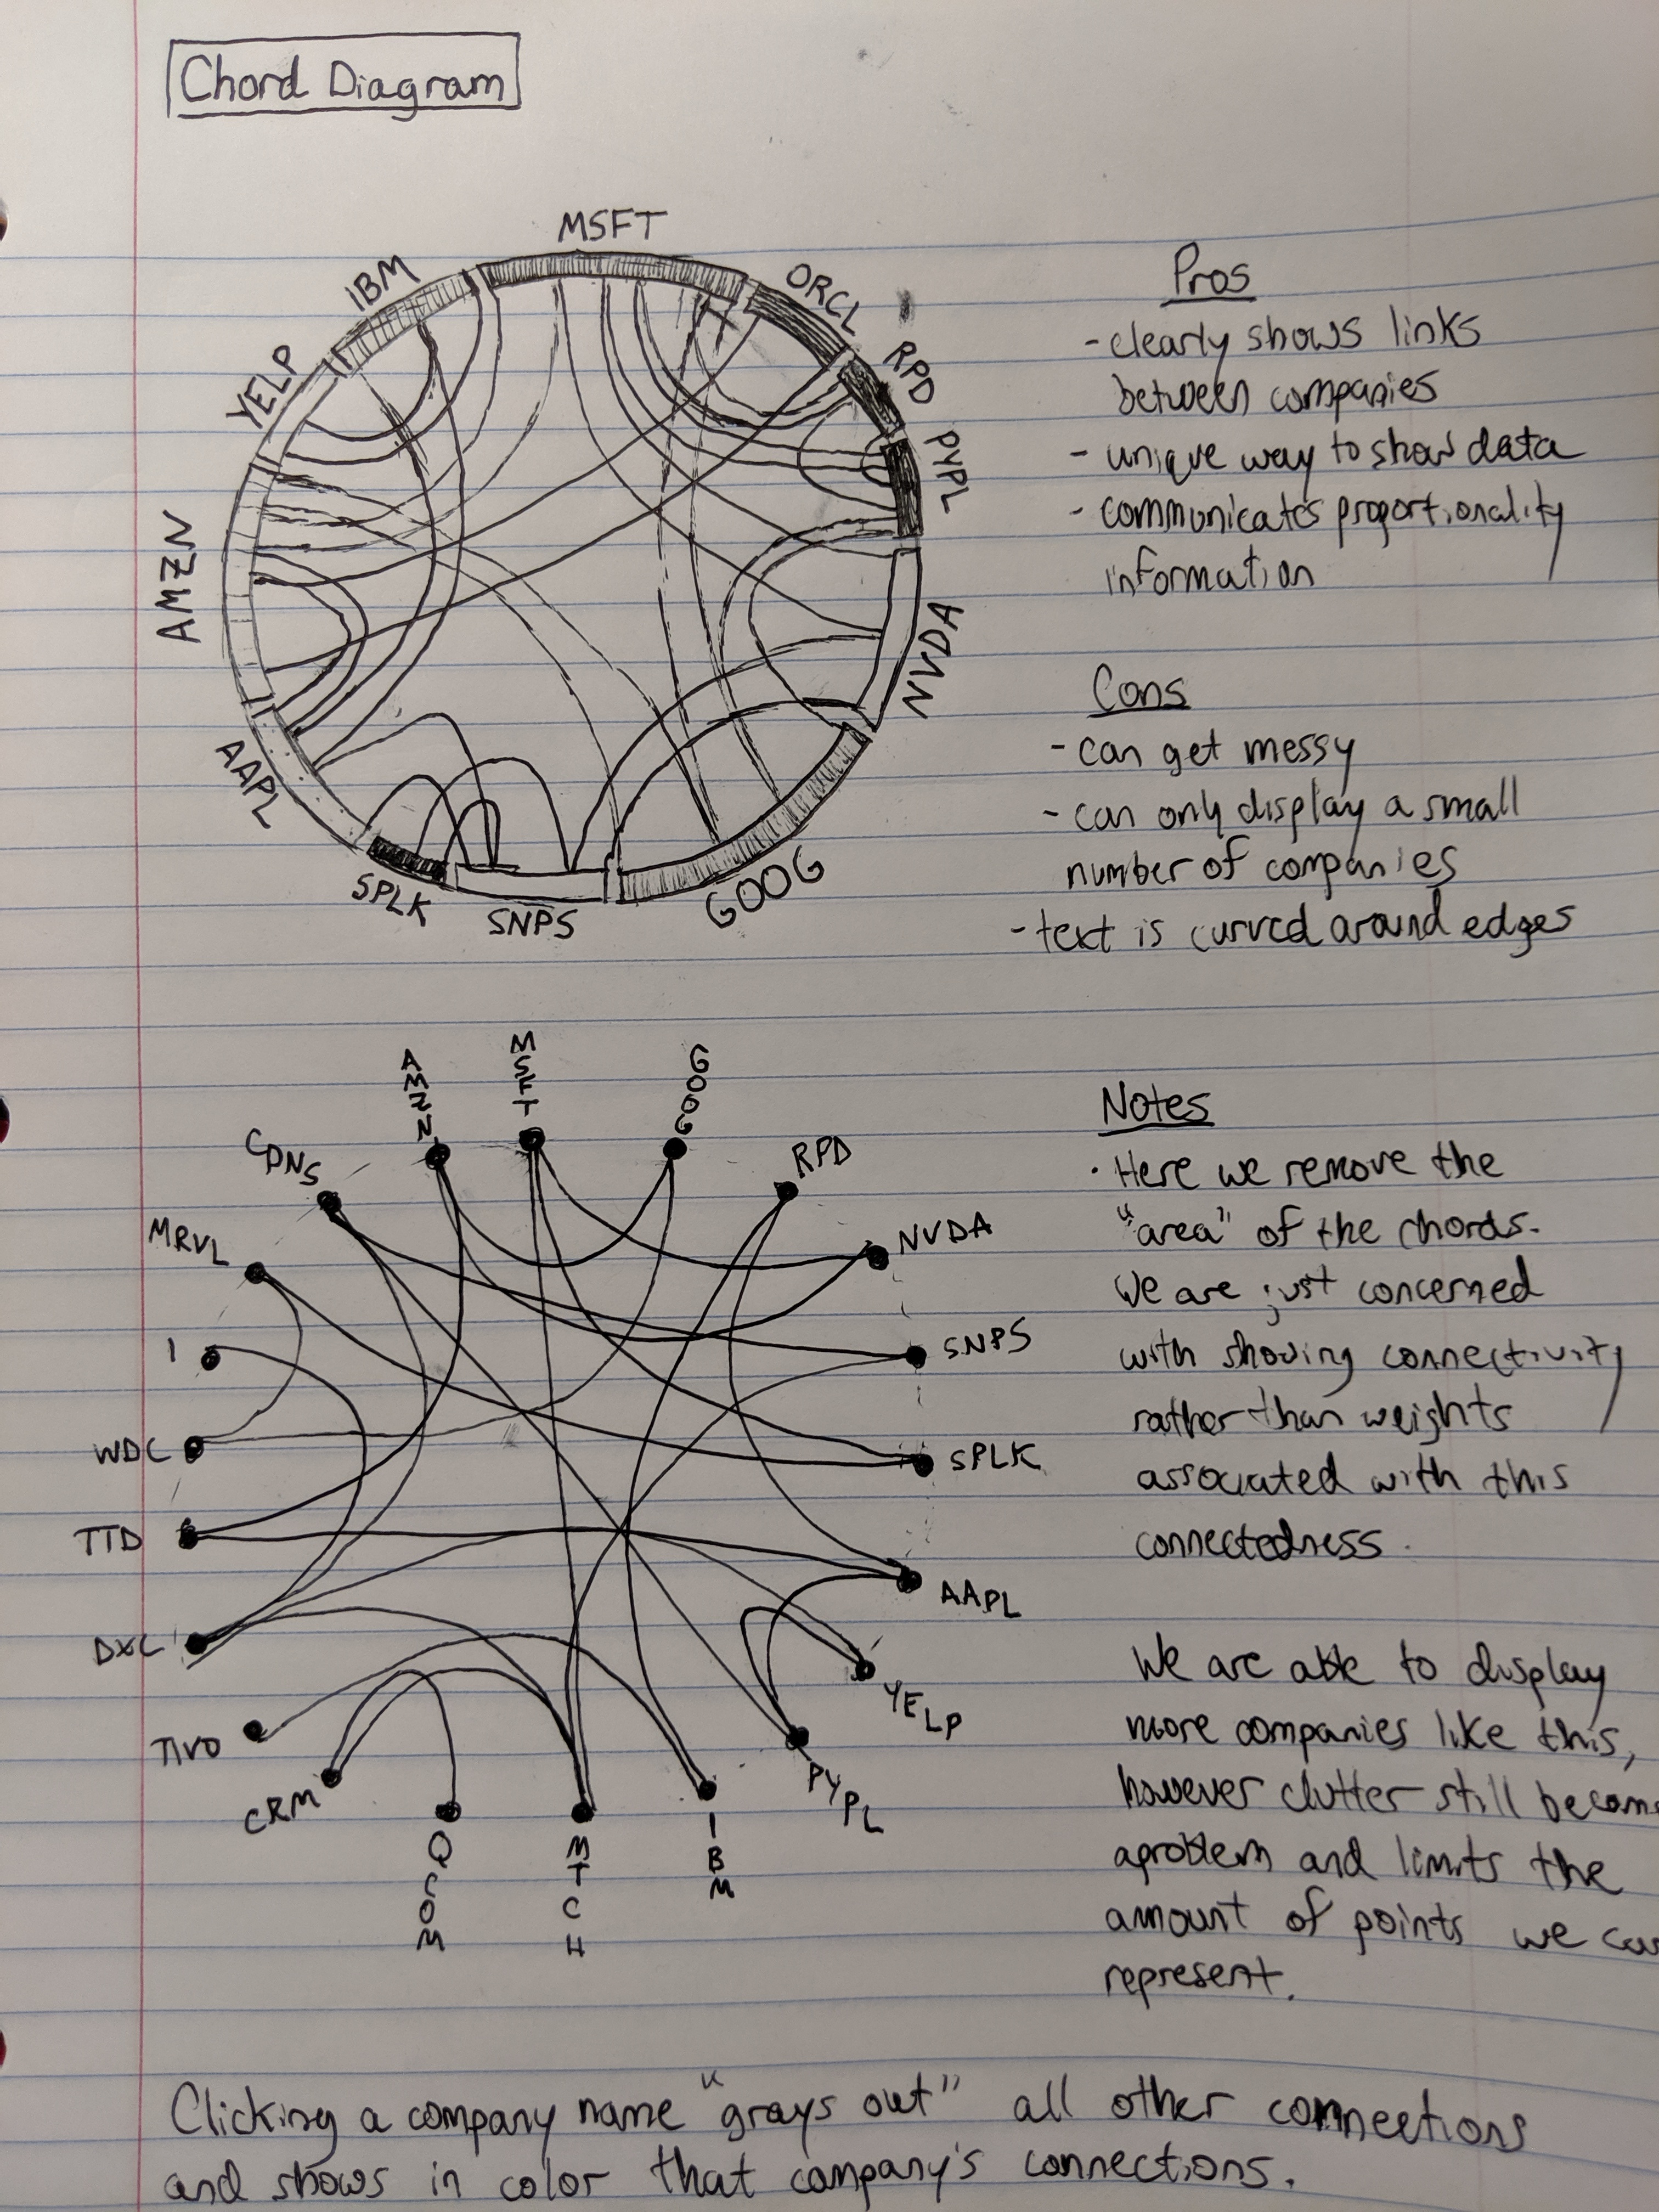 Chord Diagram
MSFT
ORCL
RPD
PYPL
NVDA
GOOG
SNPS
SPLK
AAPL
AMZN
YELP
IBM
Pros
- clearly shows links
between companies
- unique way to show data
- communicates proportionality
information
Cons
- can get messy
- can only display a small
number of companies
- text is curved around edges
AMZN
MSFT
GOOG
RPD
NVDA
SNPS
SPLK
AAPL
YELP
PYPL
IBM
MTCH
QCOM
CRM
TIVO
DXC
TTD
WDC
I
MRVL
CDNS
Notes
· Here we remove the
"area" of the chords.
We are just concerned
with showing connectivity
rather than weights
associated with this
connectedness.
We are able to display
more companies like this,
however clutter still becom
a problem and limits the
amount of points we can
represent.
Clicking a company name "grays out" all other connections
and shows in color that company's connections.